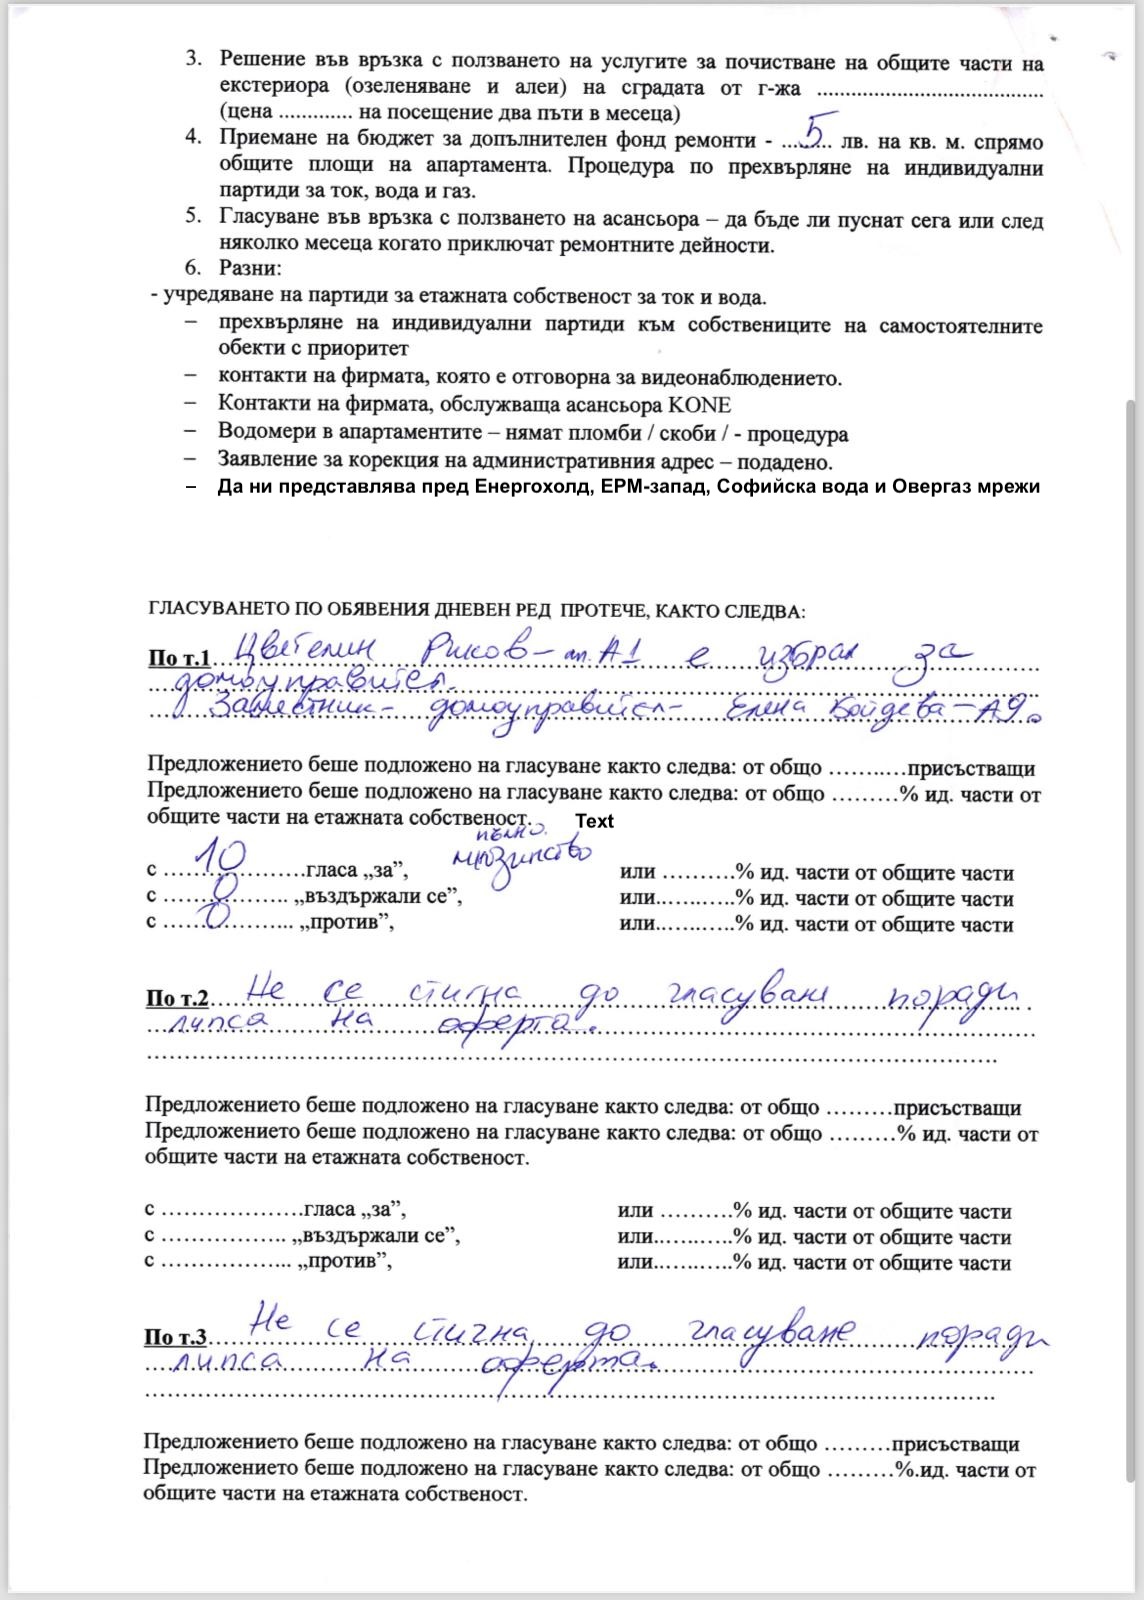 3. Решение във връзка с ползването на услугите за почистване на общите части на
екстериора (озеленяване и алеи) на сградата от г-жа ......................................
(цена ............. на посещение два пъти в месеца)
4. Приемане на бюджет за допълнителен фонд ремонти - ...5... лв. на кв. м. спрямо
общите площи на апартамента. Процедура по прехвърляне на индивидуални
партиди за ток, вода и газ.
5. Гласуване във връзка с ползването на асансьора – да бъде ли пуснат сега или след
няколко месеца когато приключат ремонтните дейности.
6. Разни:
- учредяване на партиди за етажната собственост за ток и вода.
– прехвърляне на индивидуални партиди към собствениците на самостоятелните
обекти с приоритет
– контакти на фирмата, която е отговорна за видеонаблюдението.
– Контакти на фирмата, обслужваща асансьора KONE
– Водомери в апартаментите – нямат пломби / скоби / - процедура
– Заявление за корекция на административния адрес – подадено.
– Да ни представлява пред Енергохолд, ЕРМ-запад, Софийска вода и Овергаз мрежи
ГЛАСУВАНЕТО ПО ОБЯВЕНИЯ ДНЕВЕН РЕД ПРОТЕЧЕ, КАКТО СЛЕДВА:
По т.1 Цветелин Риков - ап. А1 е избран за
домоуправител.
Заместник - домоуправител - Елена Койдева - А9.
Предложението беше подложено на гласуване както следва: от общо ………присъстващи
Предложението беше подложено на гласуване както следва: от общо ………% ид. части от
общите части на етажната собственост. Text
пълно
мнозинство
с ……10……гласа „за”, или ……….% ид. части от общите части
с ……0…….. „въздържали се”, или……….% ид. части от общите части
с ……0…….. „против”, или……….% ид. части от общите части
По т.2 Не се стигна до гласуване поради
липса на оферта.
Предложението беше подложено на гласуване както следва: от общо ………присъстващи
Предложението беше подложено на гласуване както следва: от общо ………% ид. части от
общите части на етажната собственост.
с ……………….гласа „за”, или ……….% ид. части от общите части
с …………….. „въздържали се”, или……….% ид. части от общите части
с …………….. „против”, или……….% ид. части от общите части
По т.3 Не се стигна до гласуване поради
липса на оферта.
Предложението беше подложено на гласуване както следва: от общо ………присъстващи
Предложението беше подложено на гласуване както следва: от общо ………%.ид. части от
общите части на етажната собственост.